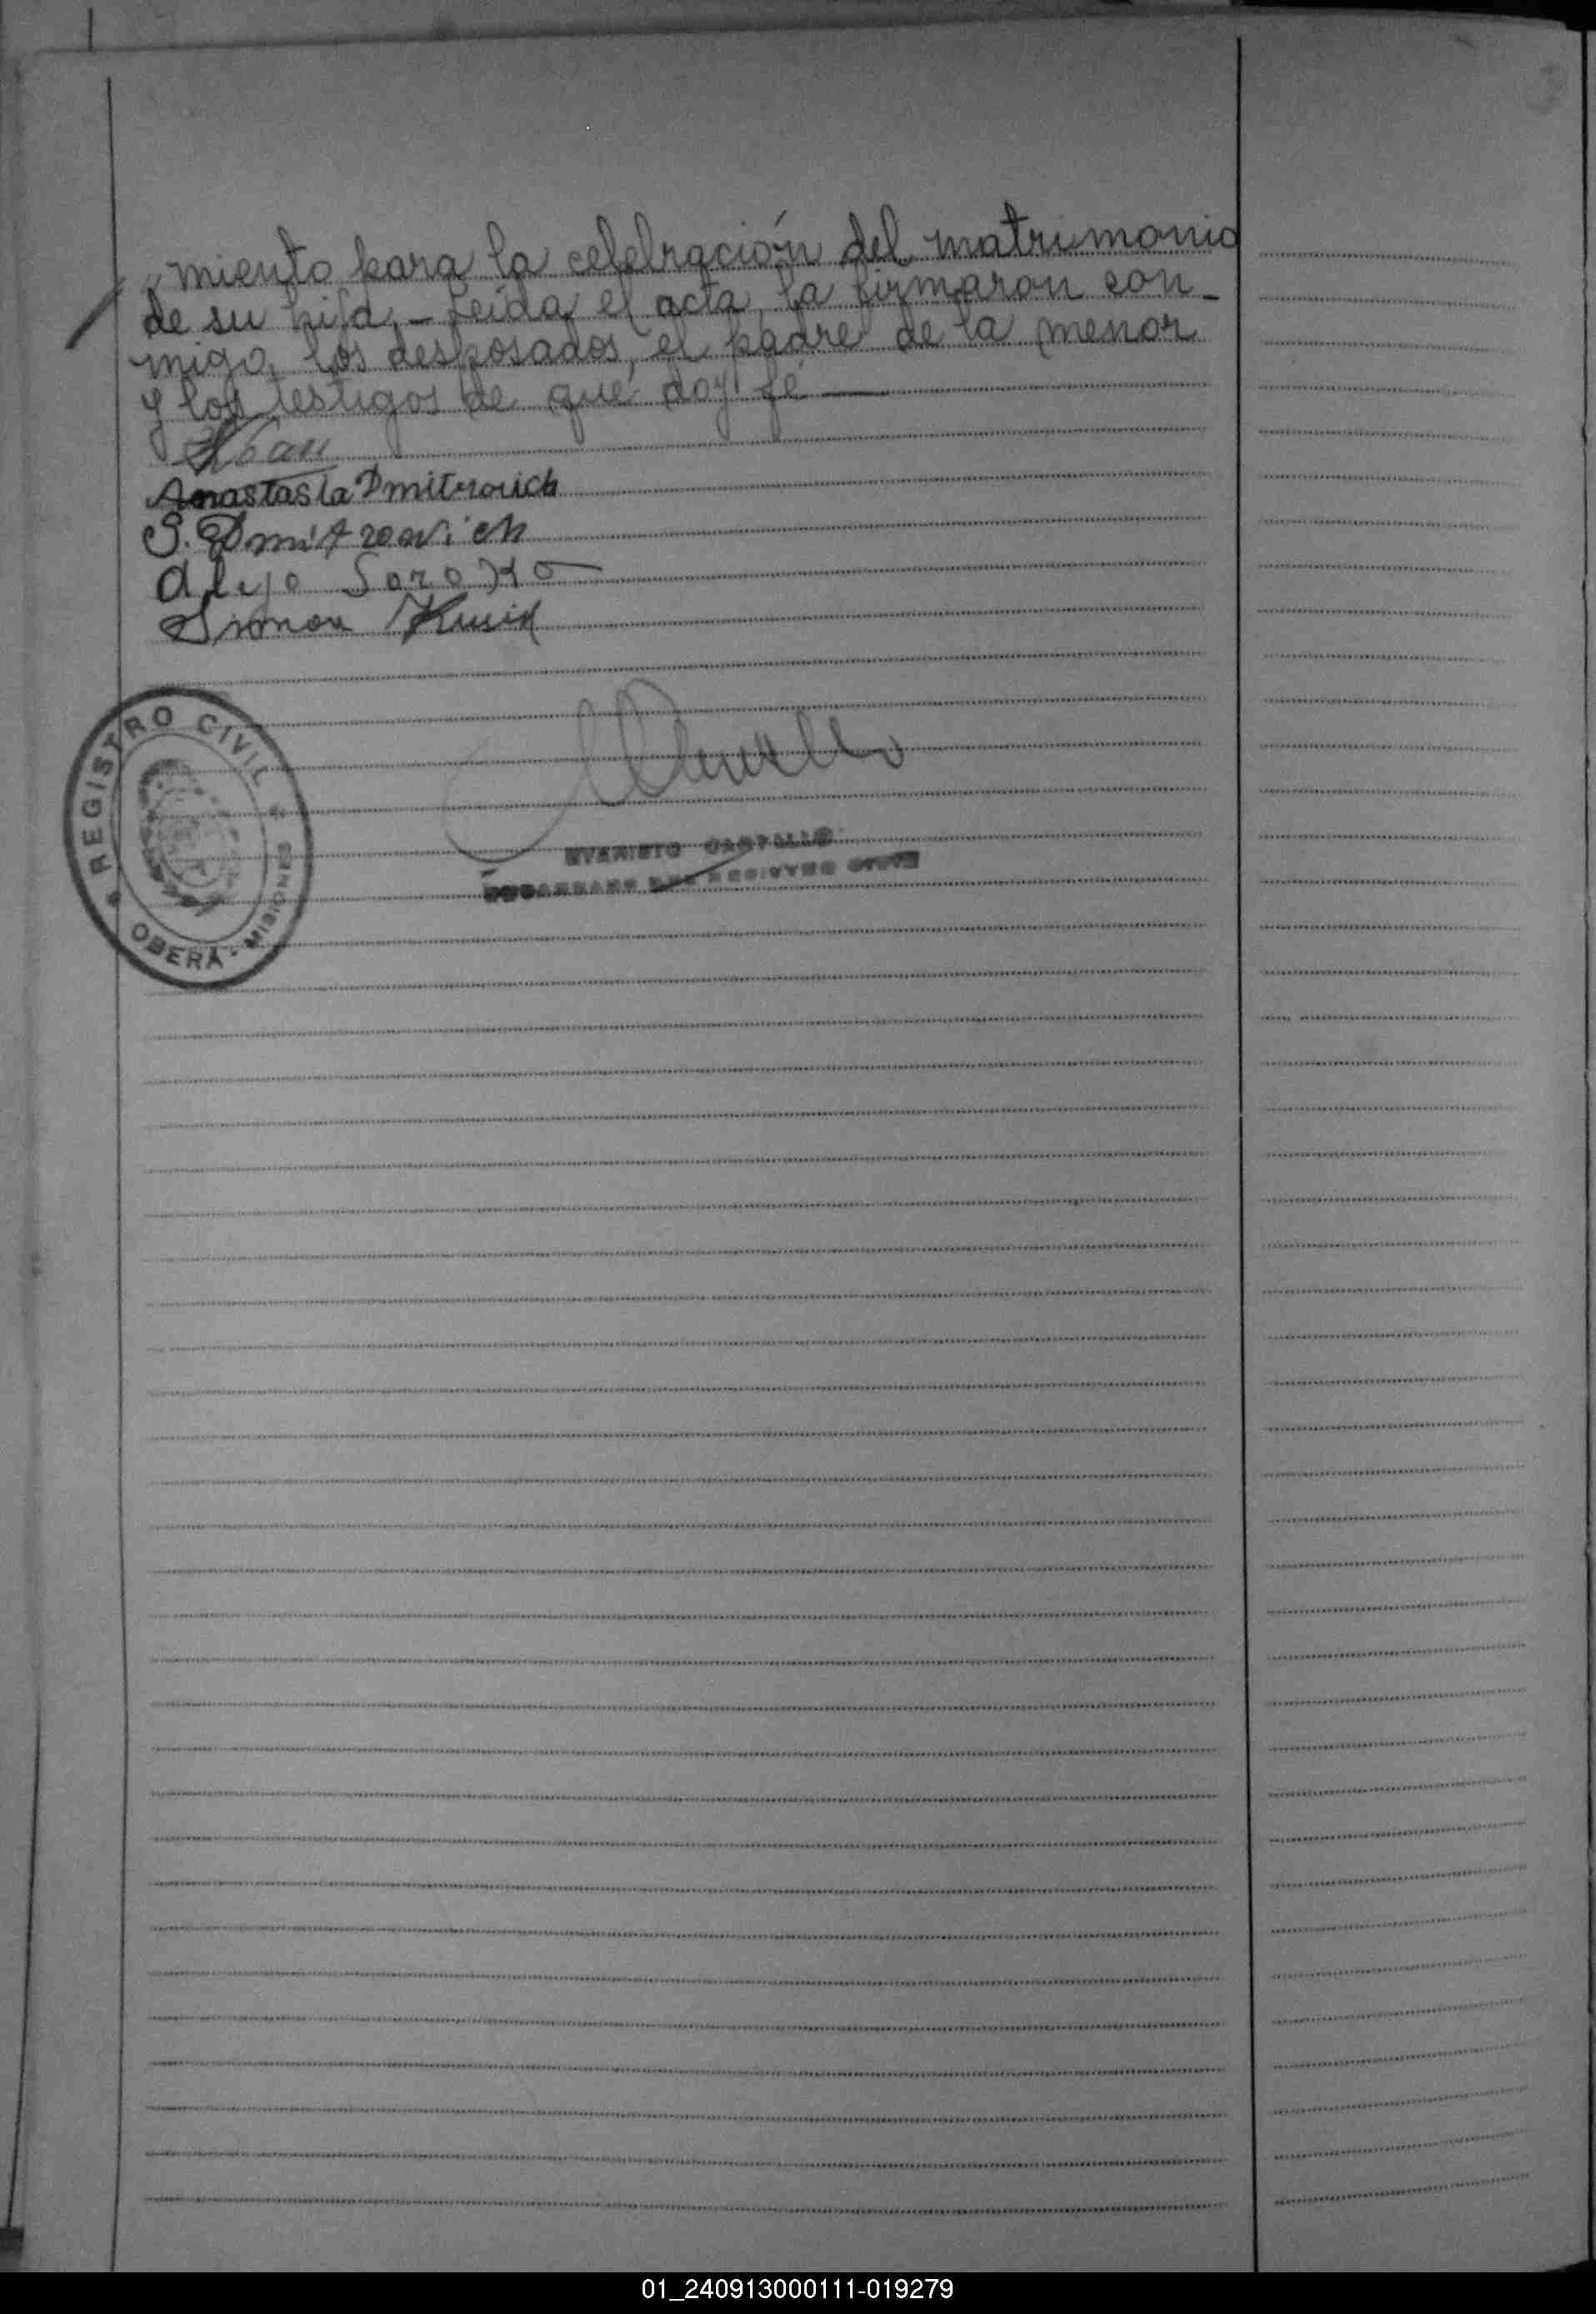 miento para la celebración del matrimonio
de su hija.- Leída el acta, la firmaron con-
migo, los desposados, el padre de la menor
y los testigos de que doy fé —
Anastasia Dmitrovich
S. Dmitrowich
Alejo Soroko
Simon
REGISTRO CIVIL
OBERÁ - MISIONES
EVARISTO CARVALLO
ENCARGADO DEL REGISTRO CIVIL
01_240913000111-019279